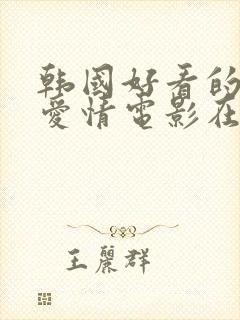 韩國好看的
爱情電影在
王麗群